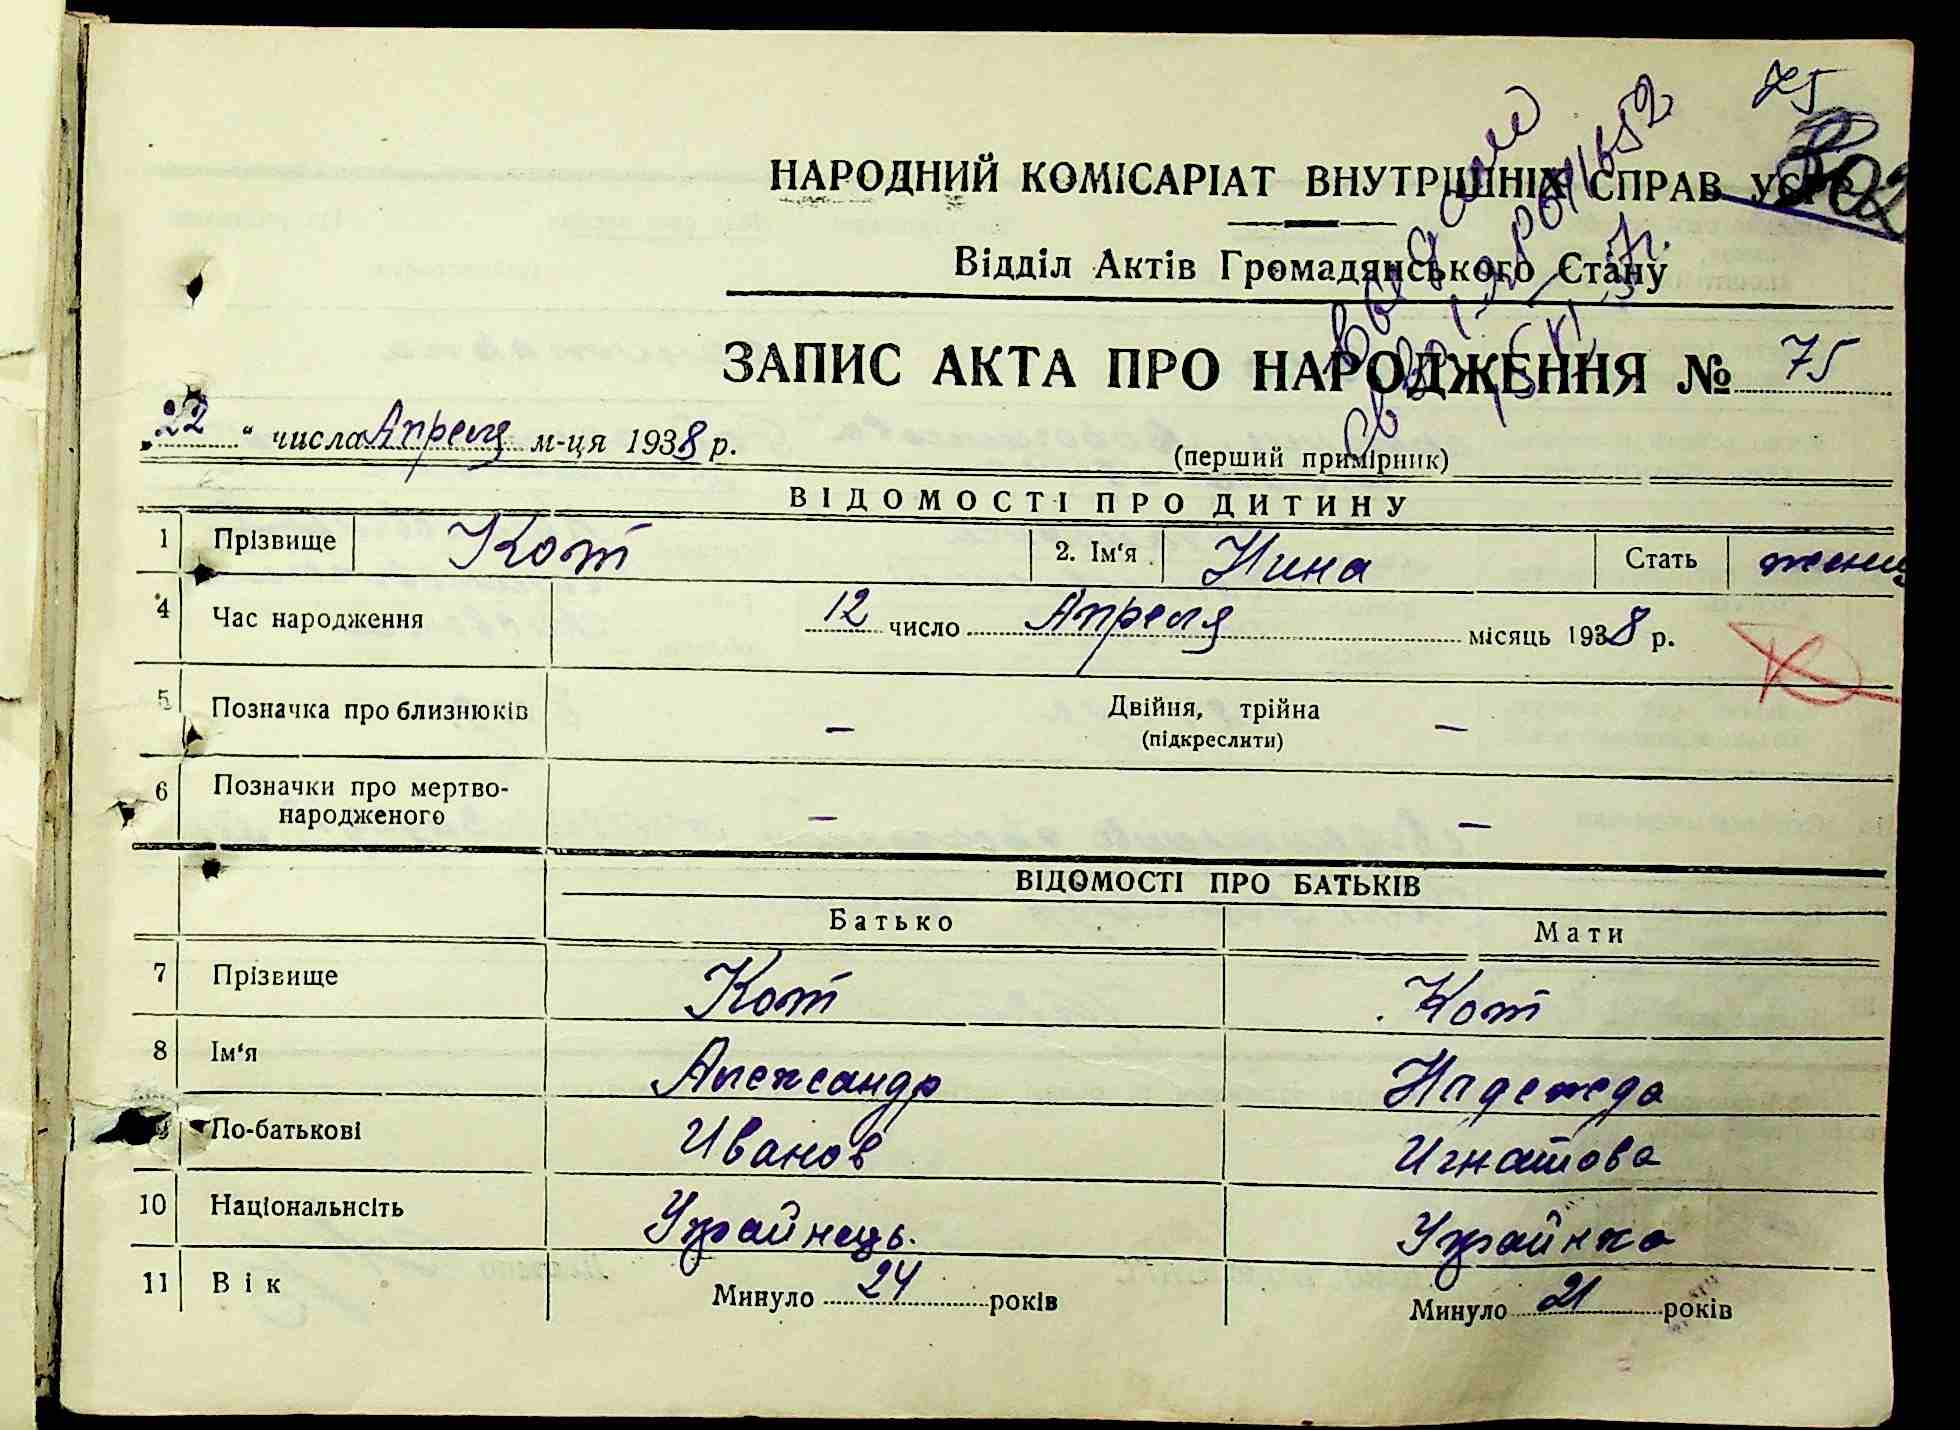 75
302
НАРОДНИЙ КОМІСАРІАТ ВНУТРІШНІХ СПРАВ УСРР
Відділ Актів Громадянського Стану
ЗАПИС АКТА ПРО НАРОДЖЕННЯ № 75
„22“ числа Апреля м-ця 1938 р.
(перший примірник)
ВІДОМОСТІ ПРО ДИТИНУ
1 Прізвище Кот 2. Ім'я Нина Стать женс
4 Час народження 12 число Апреля місяць 1938 р.
5 Позначка про близнюків — Двійня, трійна —
(підкреслити)
6 Позначки про мертво-
народженого — —
ВІДОМОСТІ ПРО БАТЬКІВ
Батько Мати
7 Прізвище Кот Кот
8 Ім'я Александр Надежда
9 По-батькові Иванов Игнатова
10 Національнсіть Украйнець. Украйнка
11 Вік Минуло 24 років Минуло 21 років